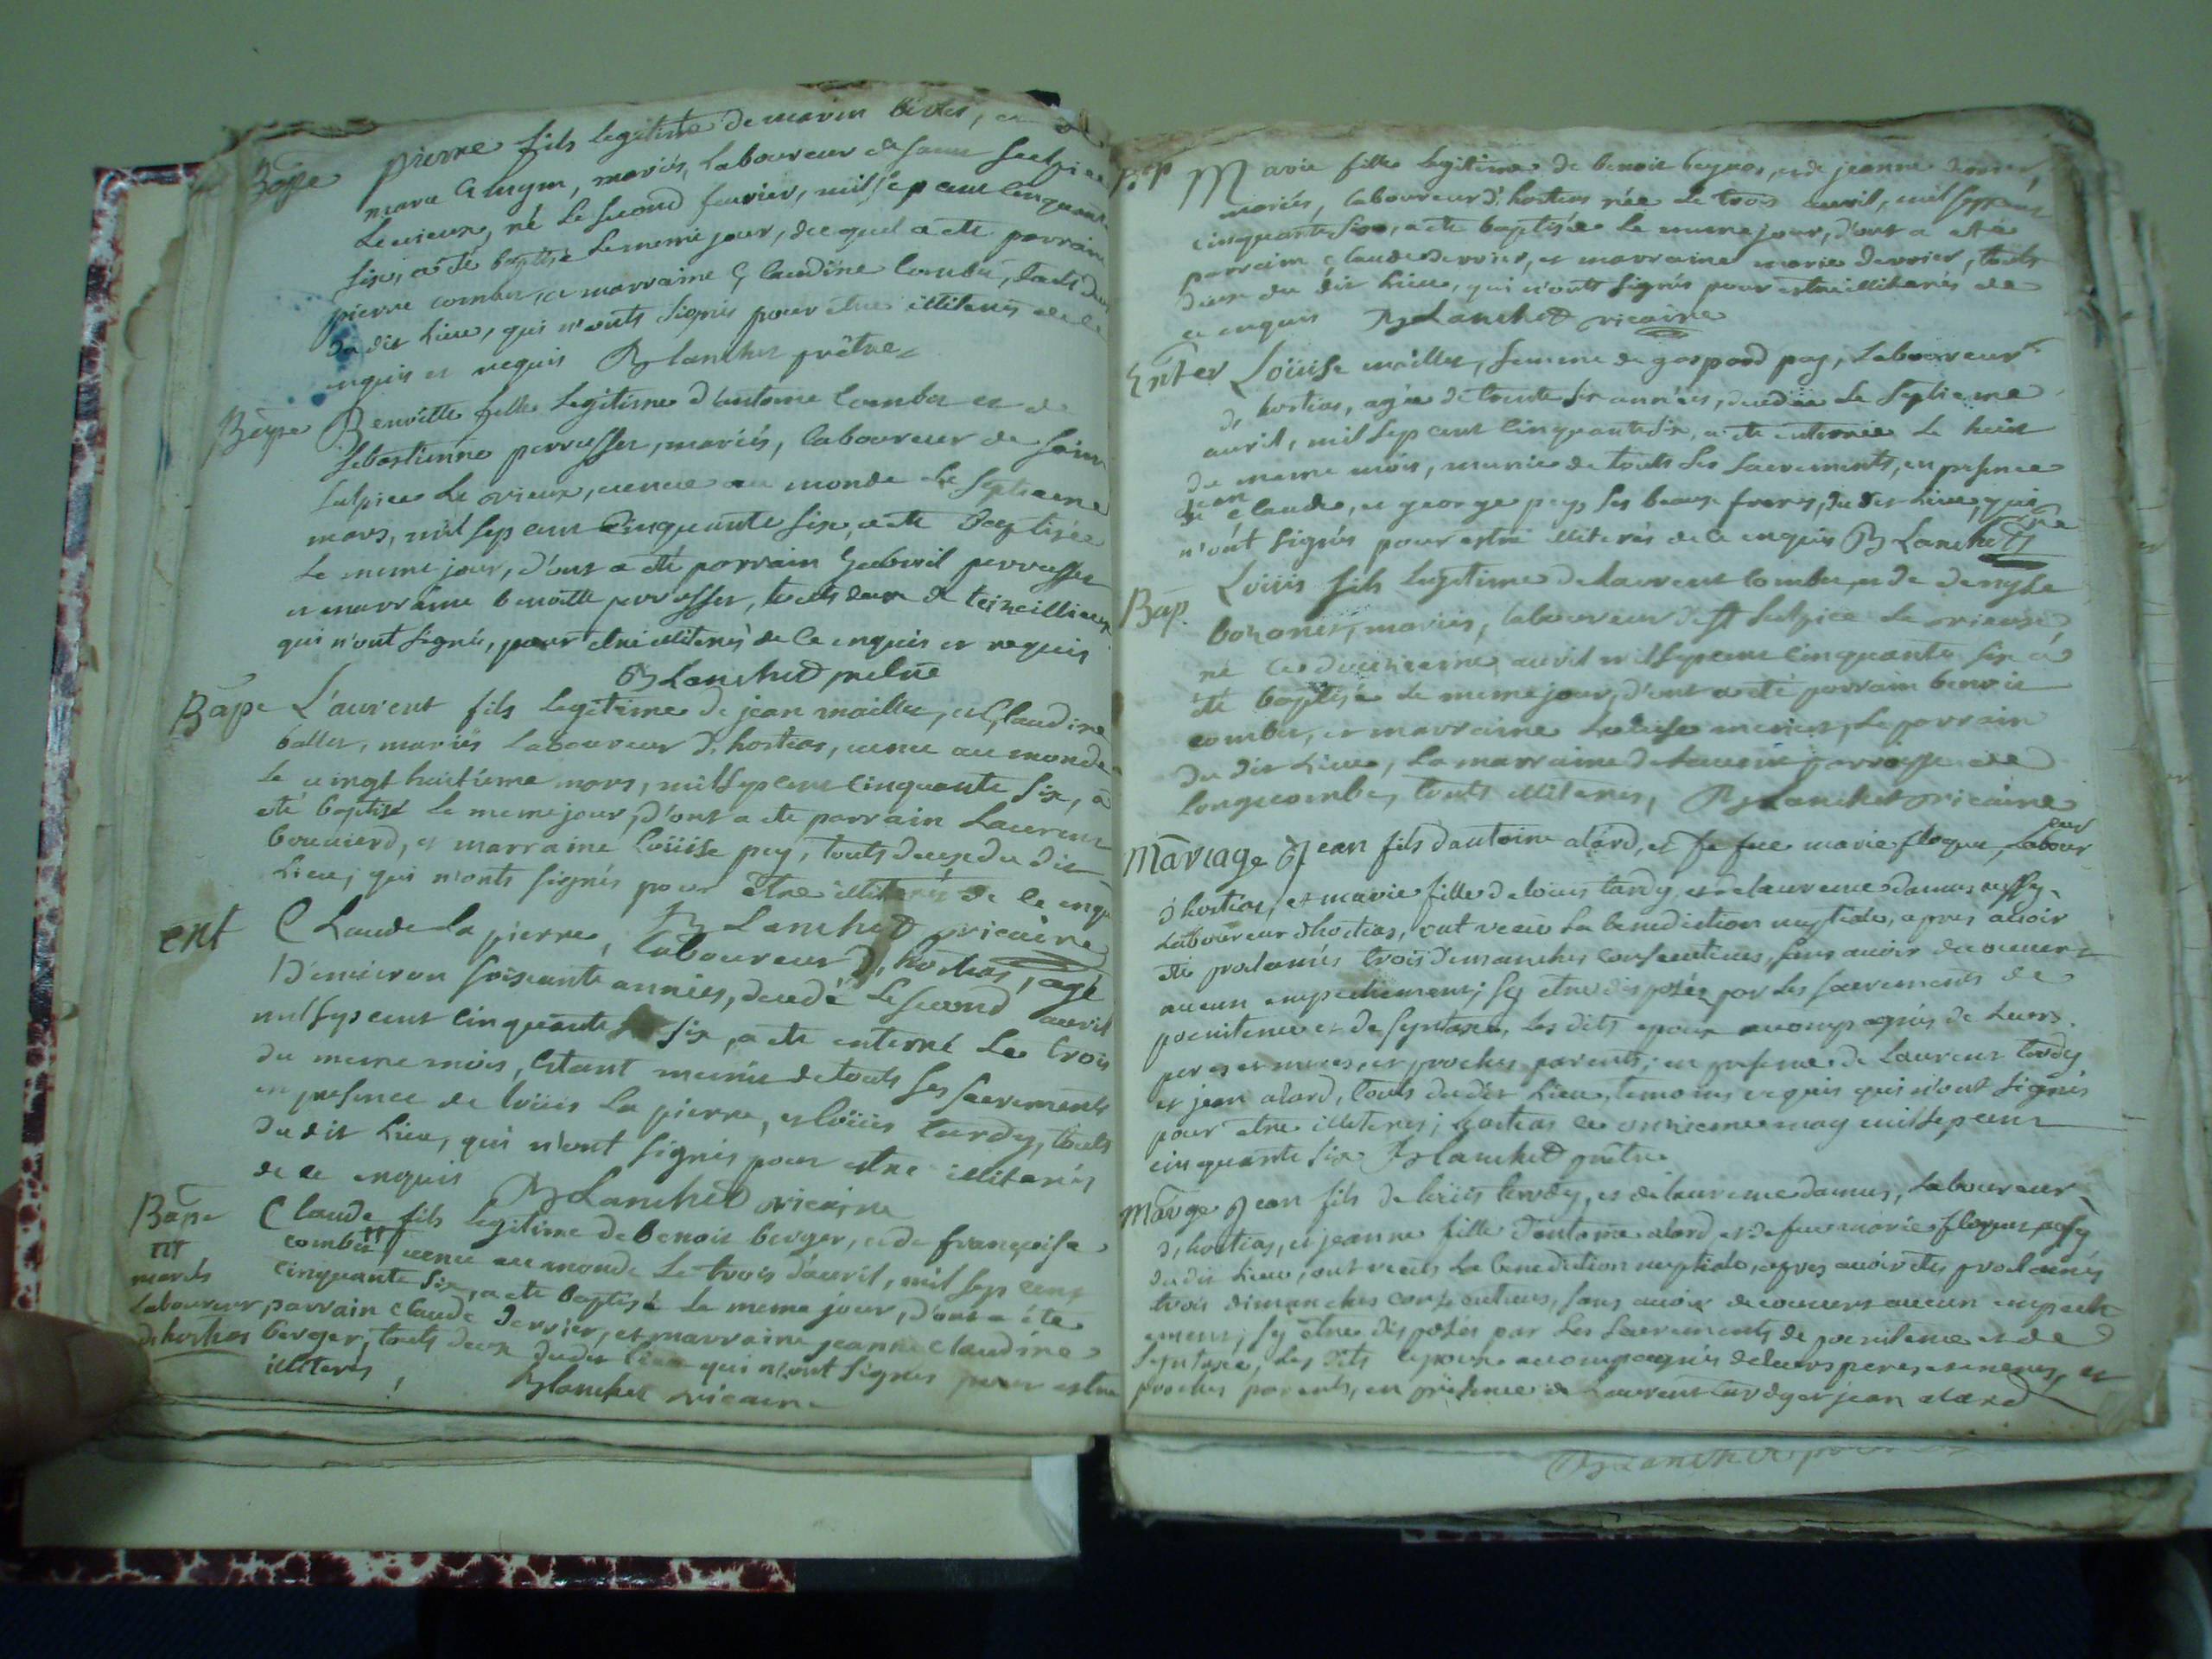 Bape Pierre fils legitime de marin
marie mariés, Laboureur de saint sulpice
Le vieux, né le second feurier, mil sept cent cinquante
six, a été baptisé le meme jour, duquel a eté parrain
pierre combet, et marraine Claudine Combet, touts deux
du dit Lieu, qui n'onts signés pour être illiterés de ce
enquis et requis Blanchet prêtre
Bape Benoitte fille Legitime d'antoine Combet et de
sebastienne perrusset, mariés, laboureur de saint
sulpice Le vieux, venue au monde le septieme
mars, mil sept cent Cinquante six, a eté baptisée
Le meme jour, d'ont a eté parrain Gabriel perrusset
et marraine benoitte perrusset, touts deux de
qui n'ont signés, pour etre illiterés de Ce enquis et requis
Blanchet pretre
Bape L'aurent fils legitime de jean maillet, et Claudine
ballet, mariés Laboureur d'hostias, venu au monde
le vingt huitieme mars, mil sept cent cinquante six, a
eté baptisé le meme jour, d'ont a eté parrain Laurent
bouuierd, et marraine Loüise pey, touts deux du dit
Lieu, qui n'onts signés pour être illiterés de Ce enqu
Blanchet vicaire
ent Claude La pierre, laboureur d'hostias, agé
D'enuiron soixante années, decedé Le second auril
mil sept cent cinquante six, a eté enterré Le trois
du meme mois, Estant munie de touts ses sacrements
en presence de loüis La pierre, et loüis tardy, touts
du dit Lieu, qui n'ont signés pour estre illiterés
de ce enquis Blanchet vicaire
Bape Claude fils legitime de benoit berger, et de françoise
combet, venu au monde Le trois d'auril, mil sept cent
mariés
Laboureur
d'hostias
cinquante six, a eté baptisé le meme jour, d'ont a été
parrain claude derrier, et marraine jeanne claudine
berger, touts deux dudit lieu qui n'ont signés pour estre
illiterés, Blanchet vicaire
Bap Marie fille Legitime de benoit et de jeanne derrier,
mariés, laboureur d'hostias née Le trois auril, mil sept cent
cinquante six, a eté baptisée le meme jour, d'ont a eté
parrain claude derrier, et marraine marie derrier, touts
deux du dit Lieu, qui n'ont signés pour estre illiterés de
ce enquis Blanchet vicaire
Enter Loüise maillet, femme de gaspard pey, Laboureur
d'hostias, agée de trente six années, decedée Le septieme
auril, mil sept cent Cinquante six, a eté enterrée Le huit
du meme mois, munie de touts ses sacrements, en presence
de jean claude, et george pey, ses beaux freres, du dit Lieu, qui
n'ont signés pour estre illiterés de ce enquis Blanchet
Bap. Loüis fils Legitime de Laurent Combet, et de denyse
mariés, laboureur de st sulpice Le vieux,
né Le auril mil sept cent Cinquante six a
eté baptisé Le meme jour, d'ont a eté parrain benoit
combet, et marraine Loüise Le parrain
du dit Lieu, La marraine parroisse de
longecombe, touts illiterés, Blanchet vicaire
Mariage Jean fils d'antoine alard, et fe feue marie floque, Laboureur
d'hostias, et marie fille de loüis tardy et de laurence damus
Laboureur d'hostias, ont recu La benediction nuptiale, apres auoir
eté proclamés trois dimanches consecutiues, sans auoir decouuert
aucun empechement; s'y etre disposés par Les sacrements de
poenitence et de Les dits epoux accompagnés de Leurs
peres et meres, et proches parents; en presence de Laurent tardy
et jean alard, touts du dit Lieu, temoins requis qui n'ont signés
pour etre illiterés; hostias ce onzieme may mil sept cent
cinquante six. Blanchet prêtre
Mariage Jean fils de loüis tardy, et de laurence damus, Laboureur
d'hostias, et jeanne fille d'antoine alard, et de feue marie
du dit Lieu, ont recuts La benediction nuptiale, apres auoir etés proclamés
trois dimanches consecutiues, sans auoir decouuert aucun empech
ement; s'y être disposés par Les sacrements de poenitence et de
Les dits epoux accompagnés de leurs peres et meres, et
proches parents, en presence de Laurent tardy et jean alard